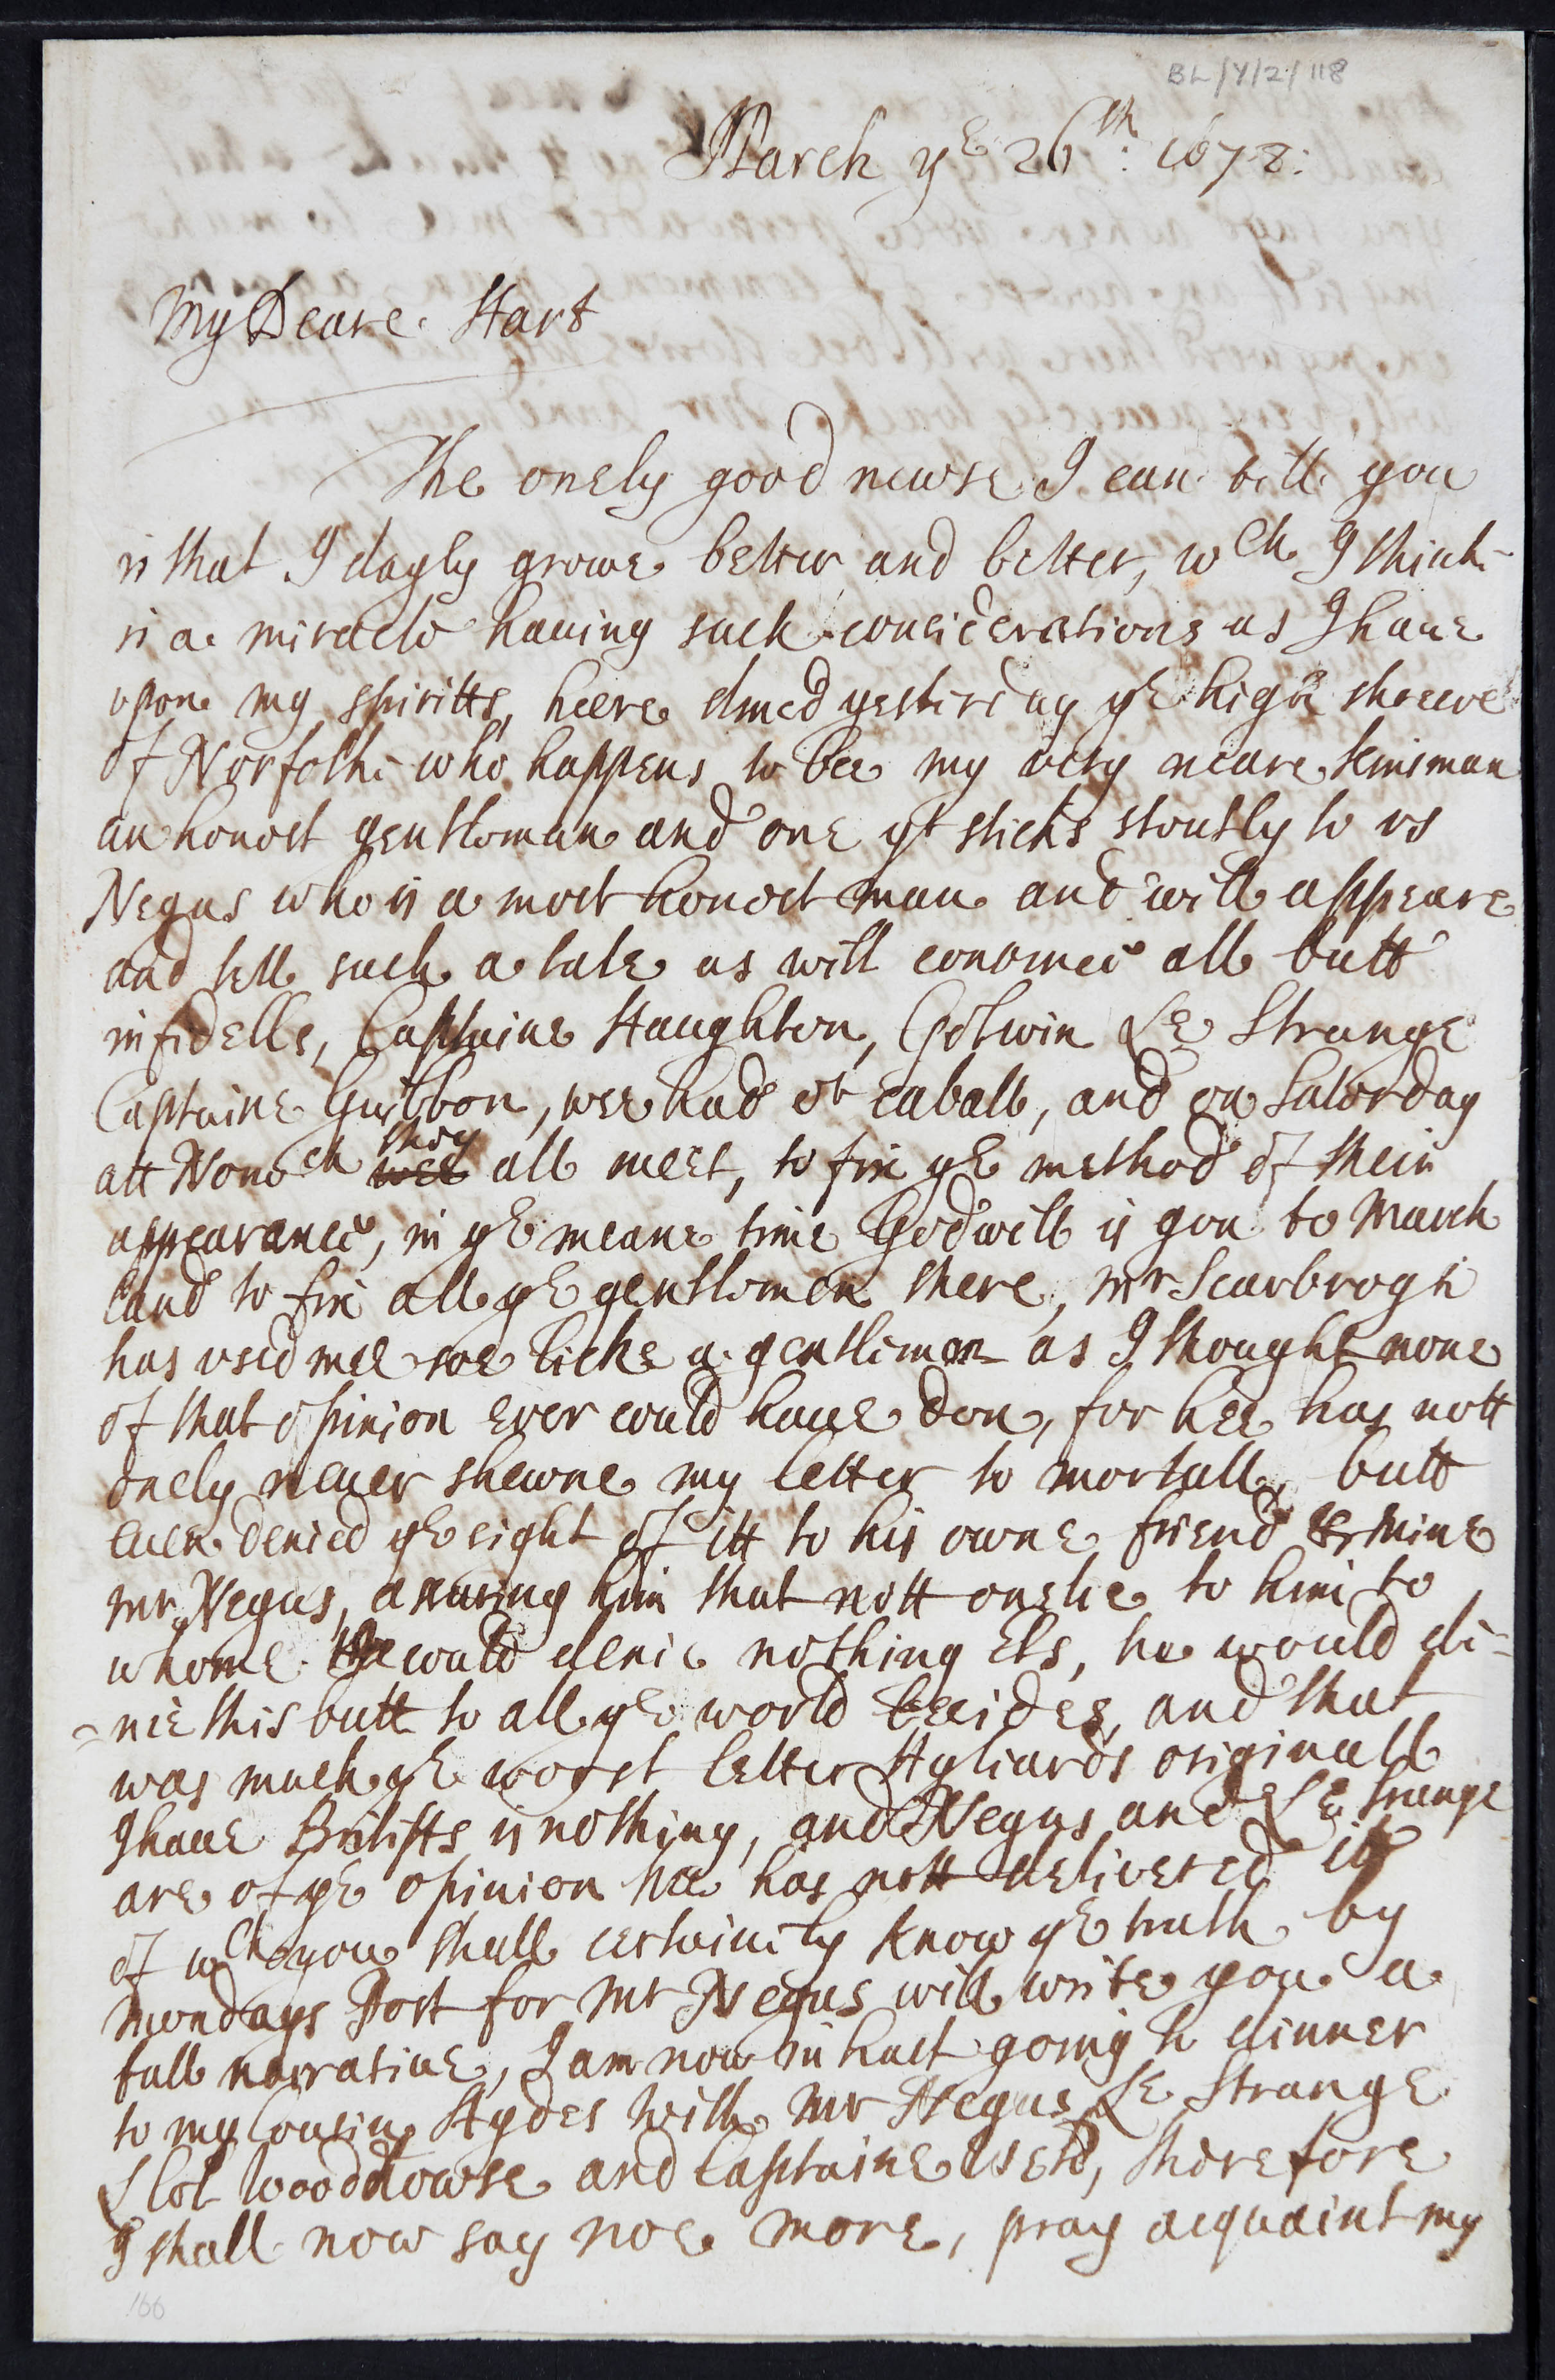 BL/Y/2/118
March yE 26th: 1678:
My Deare Hart
The onely good newse I can tell you
is that I dayly growe better and better, wch I think
is a miracle hauing such considerations as I haue
vpon my spiritts, heere dined yesterday yE high shreeve
of Norfolk who happens to bee my very neare kinsman
an honost gentloman and one yt sticks stoutly to vs
Negus who is a most honost man and will appeare
and tell such a tale as will convince all butt
infidells, Captaine Haughton, Le Strange
Captaine Guibbon, wee had or caball, and on Satorday
att Norwch wee they all meet, to fix yE method of their
appearance, in yE meane time Godwill is gon to March
land to fix all yE gentlomen there, Mr Scarbrogh
has vsed mee soe licke a gentlimon as I thought none
of that opinion ever could haue don, for hee has nott
onely neuer shewne my letter to mortall, butt
euen denied yE sight of itt to his owne friend & mine
Mr Negus, assuring him that nott onelie to him to
whome hee would denie nothing Els, he would de=
=nie this butt to all yE world besides, and that
was much yE worst letter Hyliards originall
I haue Brilifts is nothing, and Negus and Le Strange
are of yE opinion hee has nott delivered itt
of wch you shall certainity know yE truth by
Mondays Post for Mr Negus will write you a
full narratiue, I am now in hast going to dinner
to my Cousin Hydes with Mr Negus Le Strange
Col Wooddhowse and Captaine, thorefore
I shall now say noe more, pray acquaint my
166